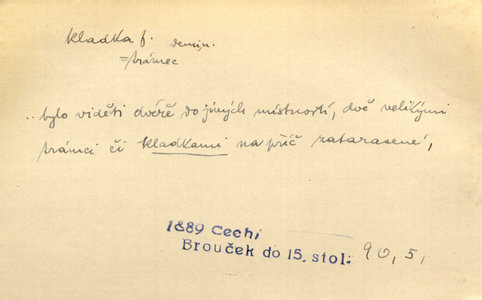 kladka f. demin.
=trámec
.. bylo viděti dvéře do jiných místností, dvě velikými
trámci či kladkami na příč zatarasené,
1889 Čech,
Brouček do 15. stol. 90,5,